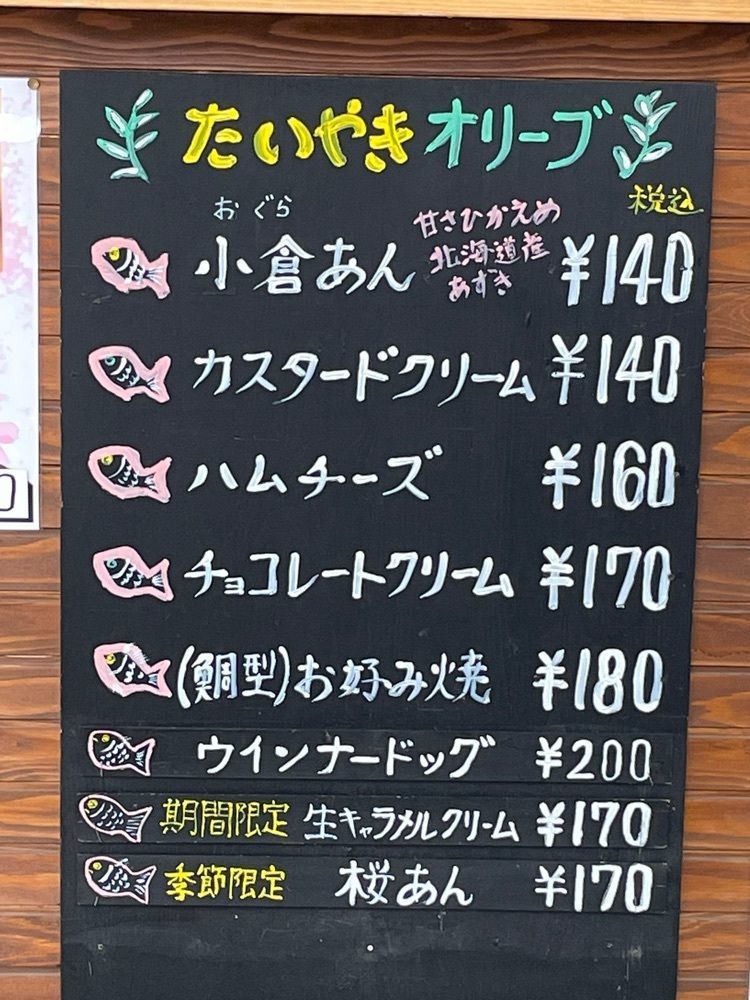 たいやきオリーブ
税込
おぐら
小倉あん 甘さひかえめ 北海道産 あずき ¥140
カスタードクリーム ¥140
ハムチーズ ¥160
チョコレートクリーム ¥170
(鯛型)お好み焼 ¥180
ウインナードッグ ¥200
期間限定 生キャラメルクリーム ¥170
季節限定 桜あん ¥170